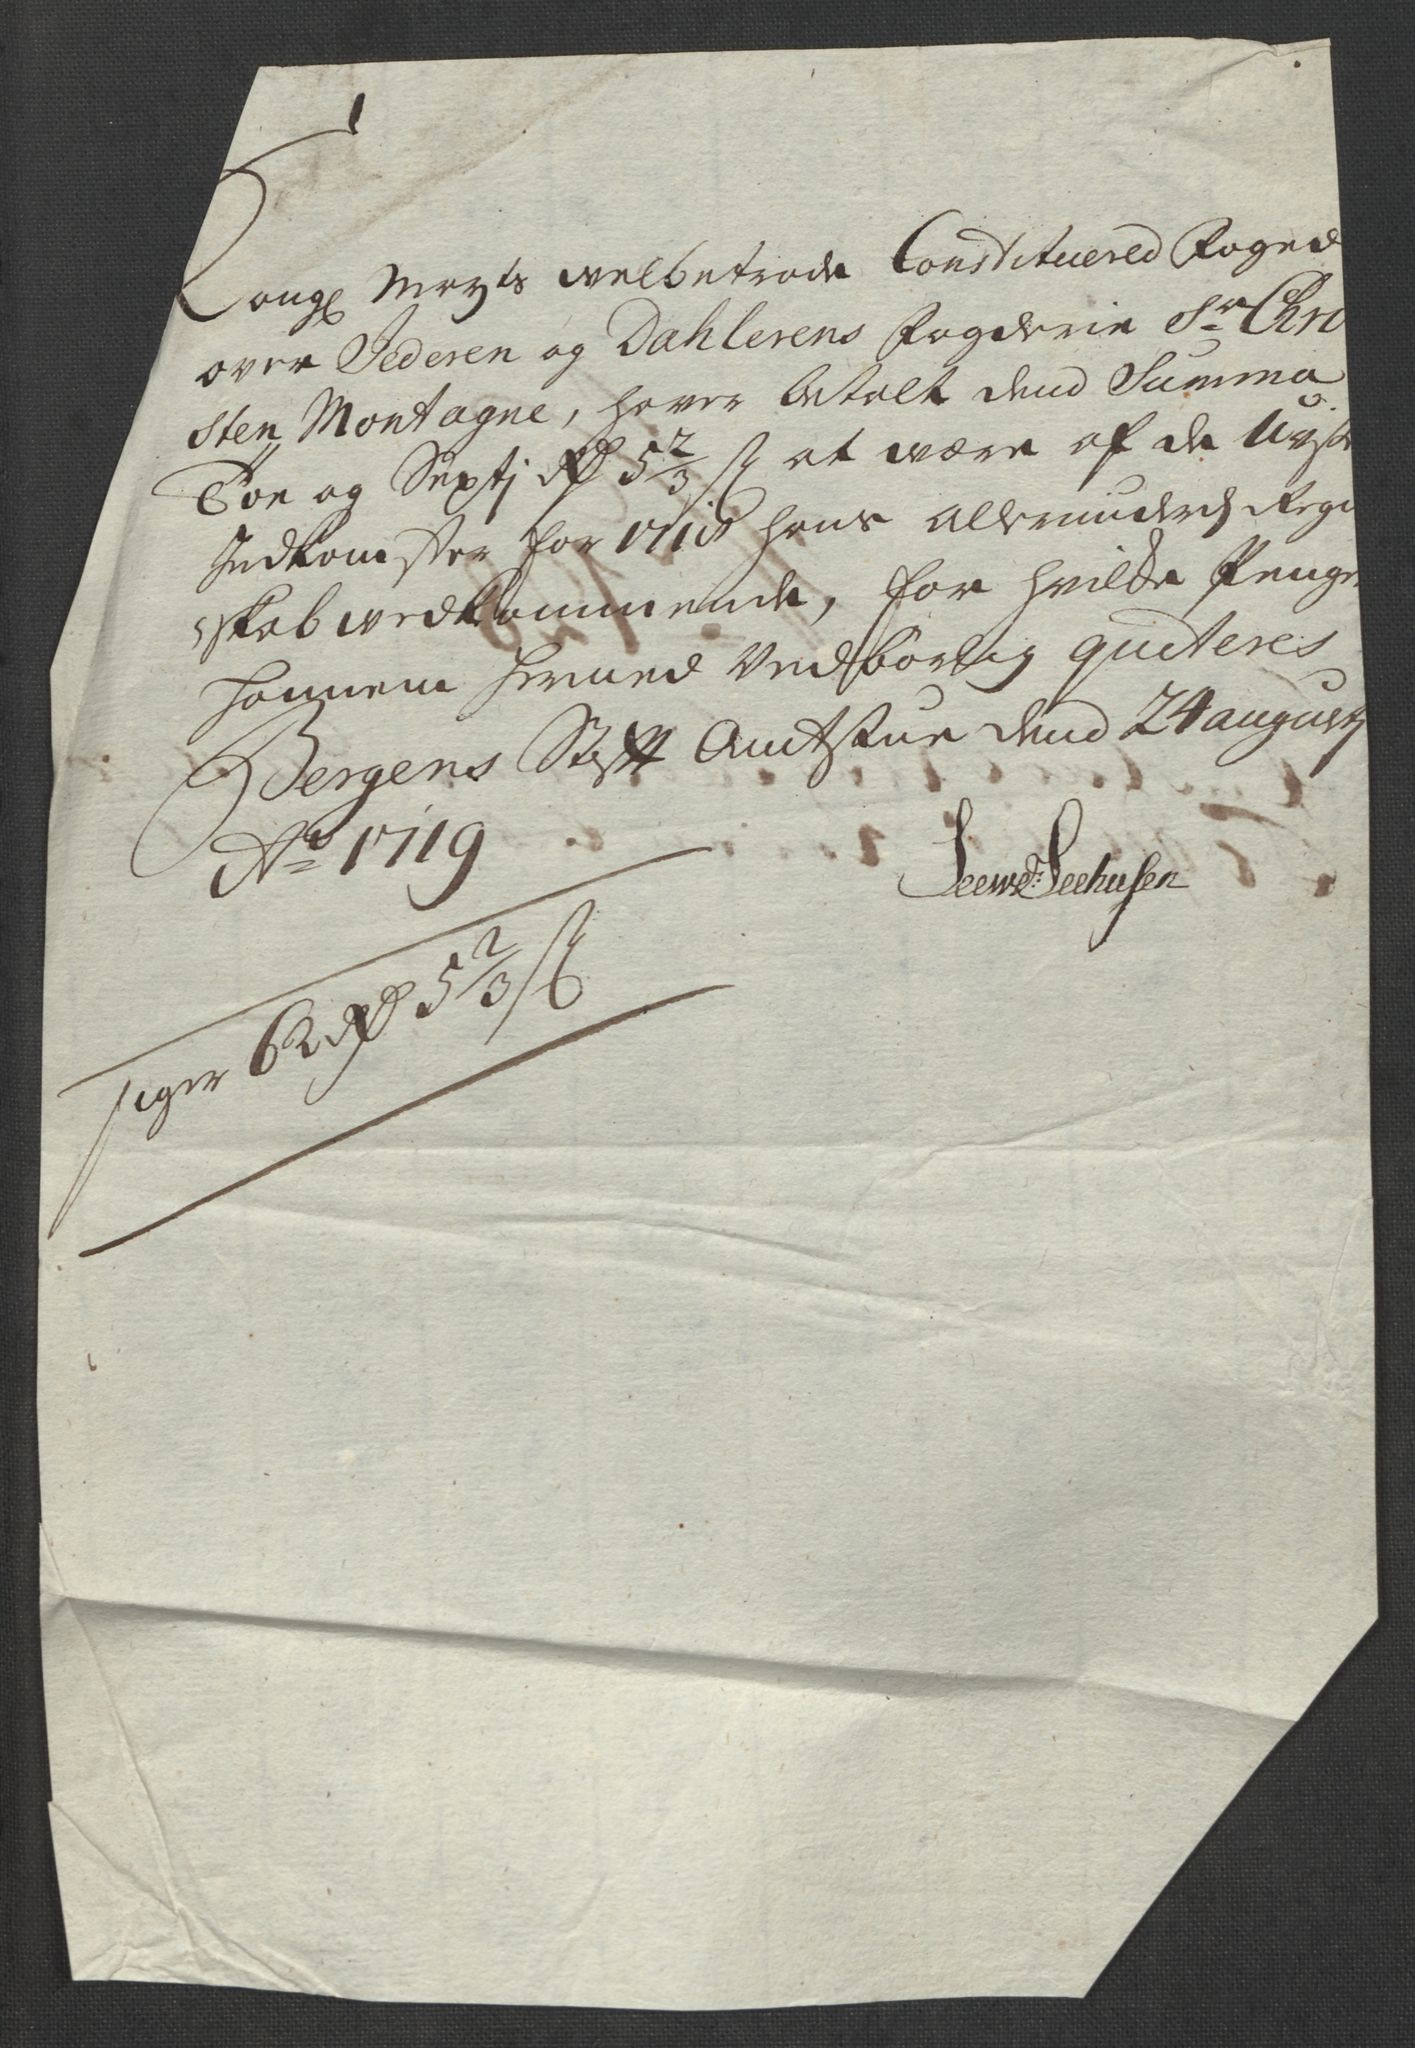 Kongl Mayts velbetrode Constituered Foged
over Jederen og Dahlerens Fogderie Sr Chri
sten Montagne, haver betalt dend Summa
Toe og Sextj Rd 5 2/3 s at være af de Uvisse
Indkomster for 1718 hans allerunderd Regn
skab vedkommende, for hvilke Penge
hannem hermed Vedbørlig quiteres
Bergens Stift Amtstue dend 24 augustj
Ao 1719
Seehusen
siger 62 Rd 5 2/3 s